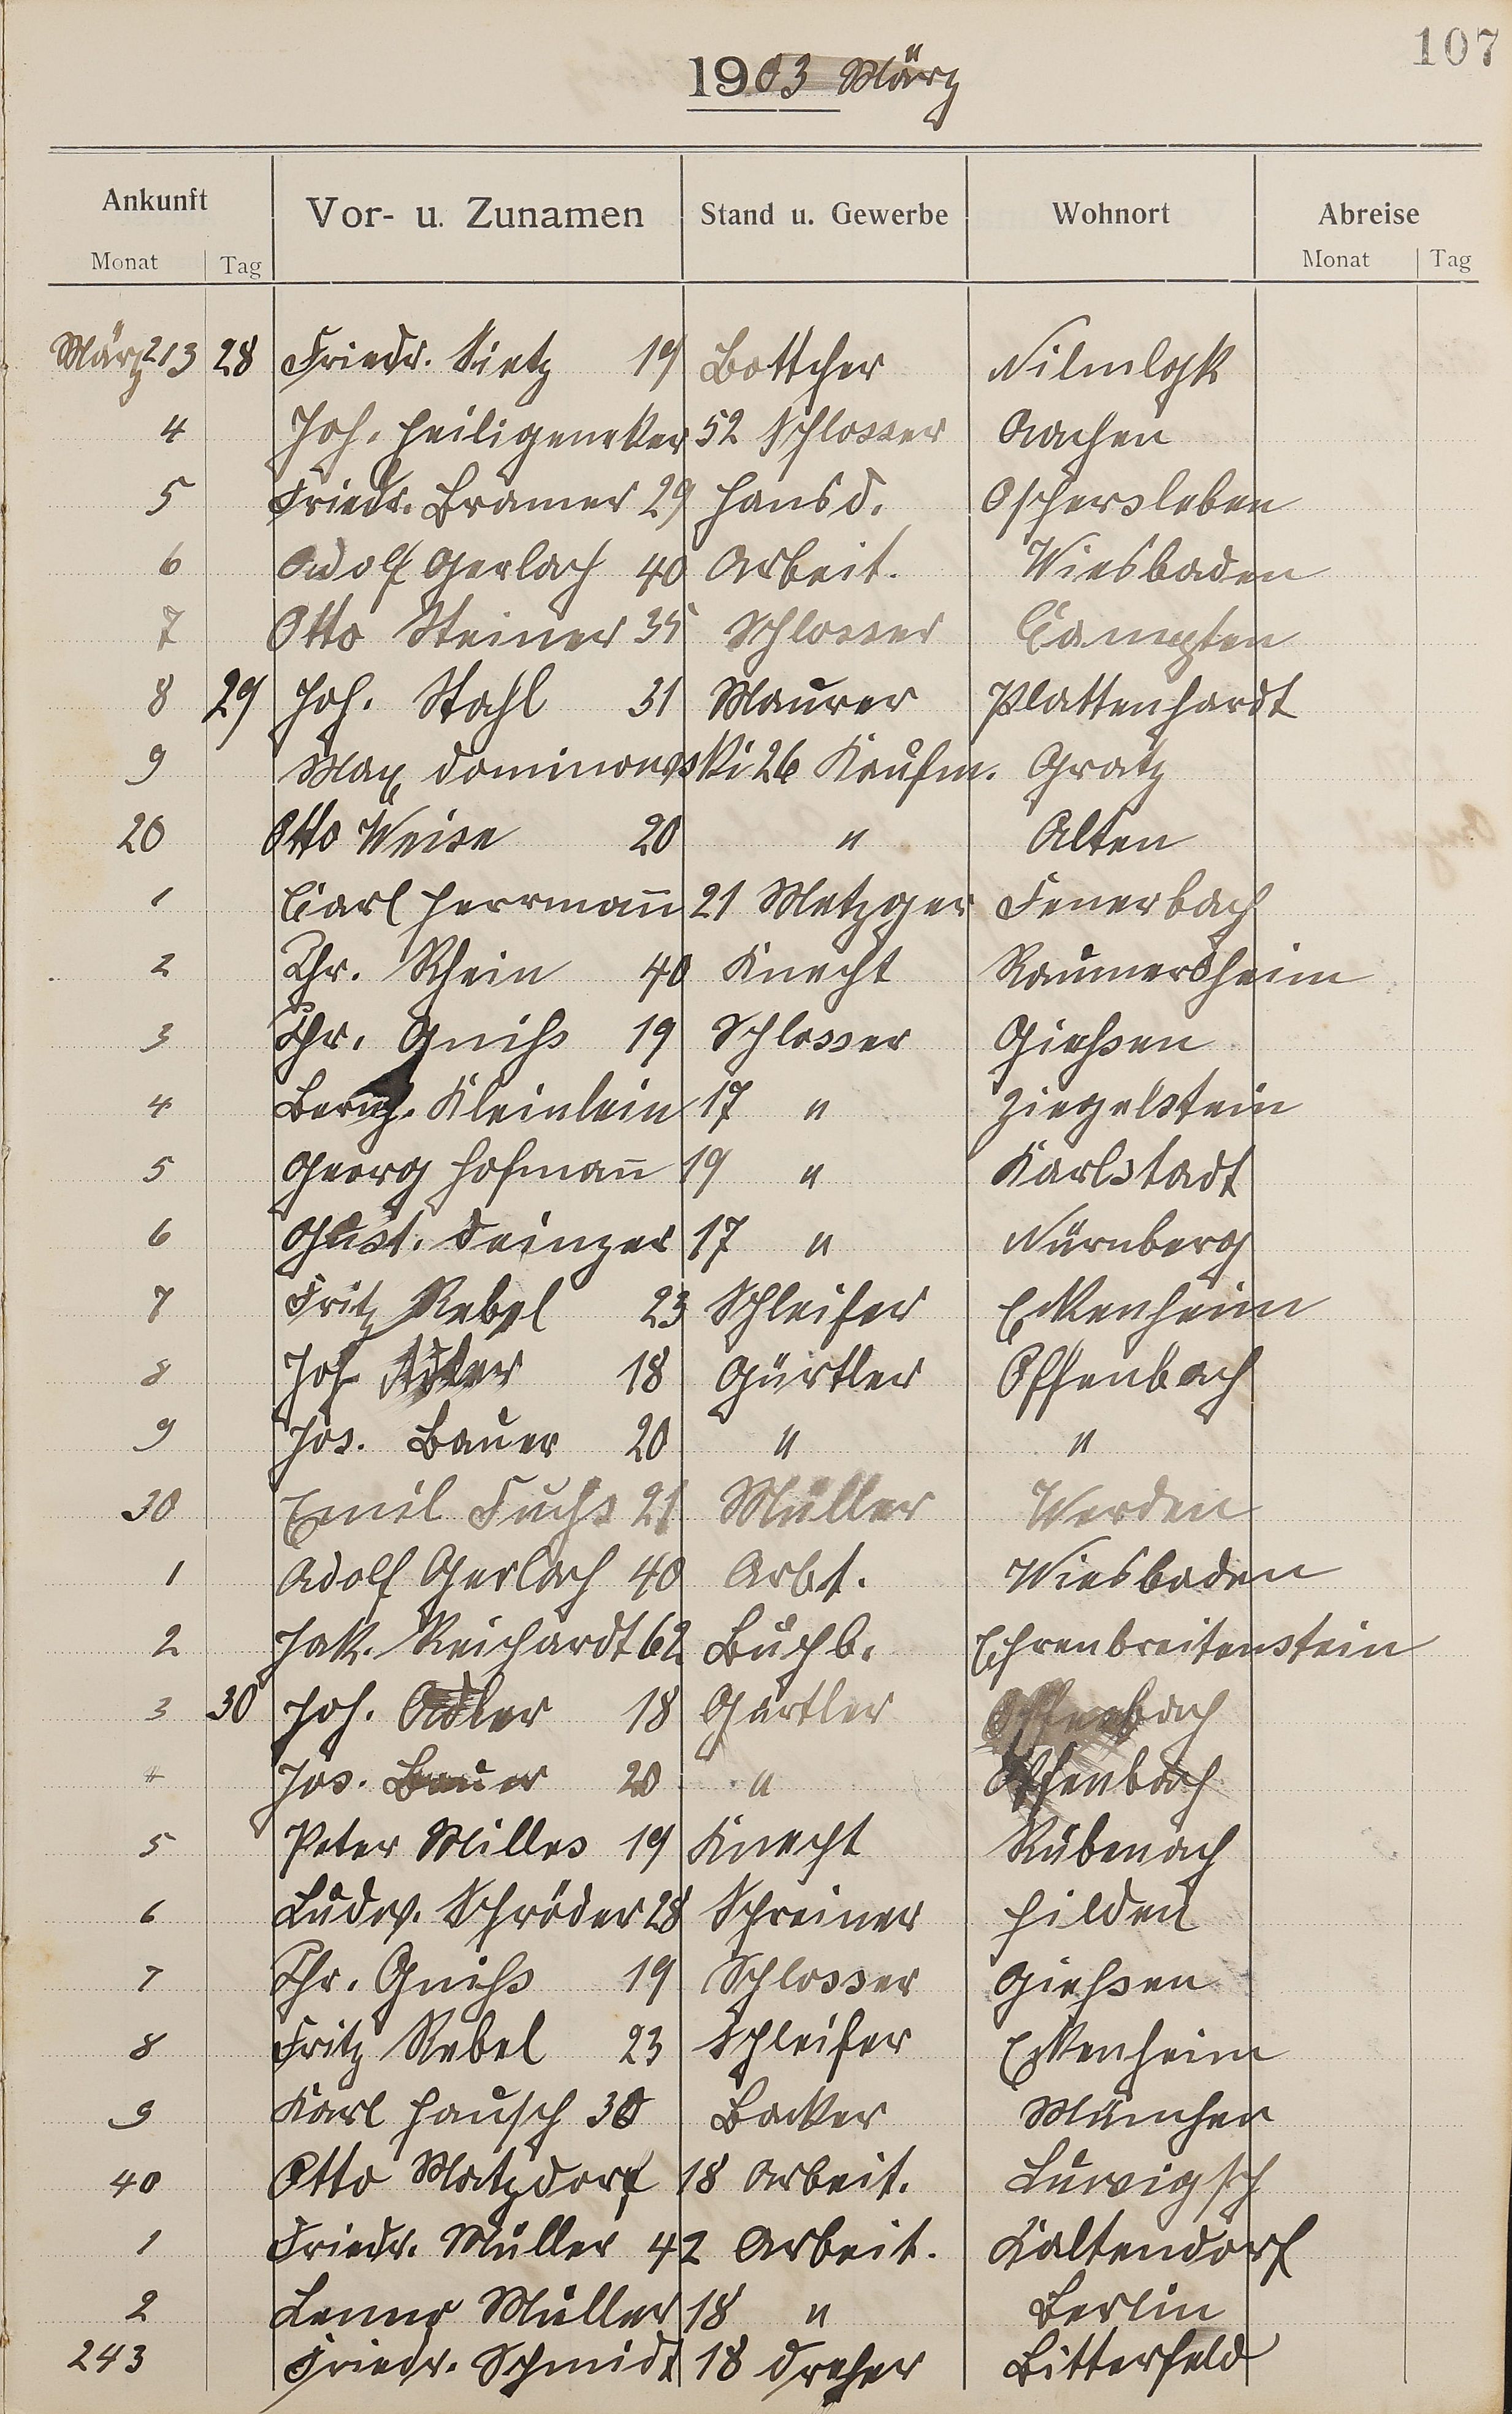 107
1903 März
Ankunft Vor- u. Zunamen Stand u. Gewerbe Wohnort Abreise
Monat Tag Monat Tag
März 213 28 Friedr. Tietz 19 Bottcher
4 Joh. Heiligeneker 52 Schlosser Aachen
5 Friedr. Bramer 29 Hausd. Oschersleben
6 Adolf Gerlach 40 Arbeit. Wiesbaden
7 Otto Steiner 35 Schlosser Campten
8 29 Joh. Stahl 31 Maurer Plattenhardt
9 Max Dominowski 26 Kaufm. Gratz
20 Otto Weise 20 " Alten
1 Carl Herrmann̅ 21 Metzger Feuerbach
2 Chr. Rhein 40 Knecht Raumersheim
3 Chr. Gniß 19 Schlosser Gießen
4 Bernh. Kleinlein 17 " Ziegelstein
5 Georg Hofman̅ 19 " Karlstadt
6 Gust. Deinzer 17 " Nürnberg
7 Fritz Rebel 23 Schleifer Eckenheim
8 Joh Adler 18 Gürtler Offenbach
9 Jos. Bauer 20 " "
30 Emil Fuchs 21 Müller Werden
1 Adolf Gerlach 40 Arbt. Wiesbaden
2 Jak. Reichardt 62 Buchb. Ehrenbreitenstein
3 30 Joh. Adler 18 Gürtler Offenbach
4 Jos. Bauer 20 " Offenbach
5 Peter Milles 19 Knecht Rübenach
6 Ludw. Schröder 28 Schreiner Hilden
7 Chr. Gniß 19 Schlosser Gießen
8 Fritz Rebel 23 Schleifer Eckenheim
9 Karl Hausch 30 Backer München
40 Otto Matzdorf 18 Arbeit. Luwigsh
1 Friedr. Müller 42 Arbeit. Kaltendorf
2 Müller 18 " Berlin
243 Friedr. Schmidt 18 Dreher Bitterfeld